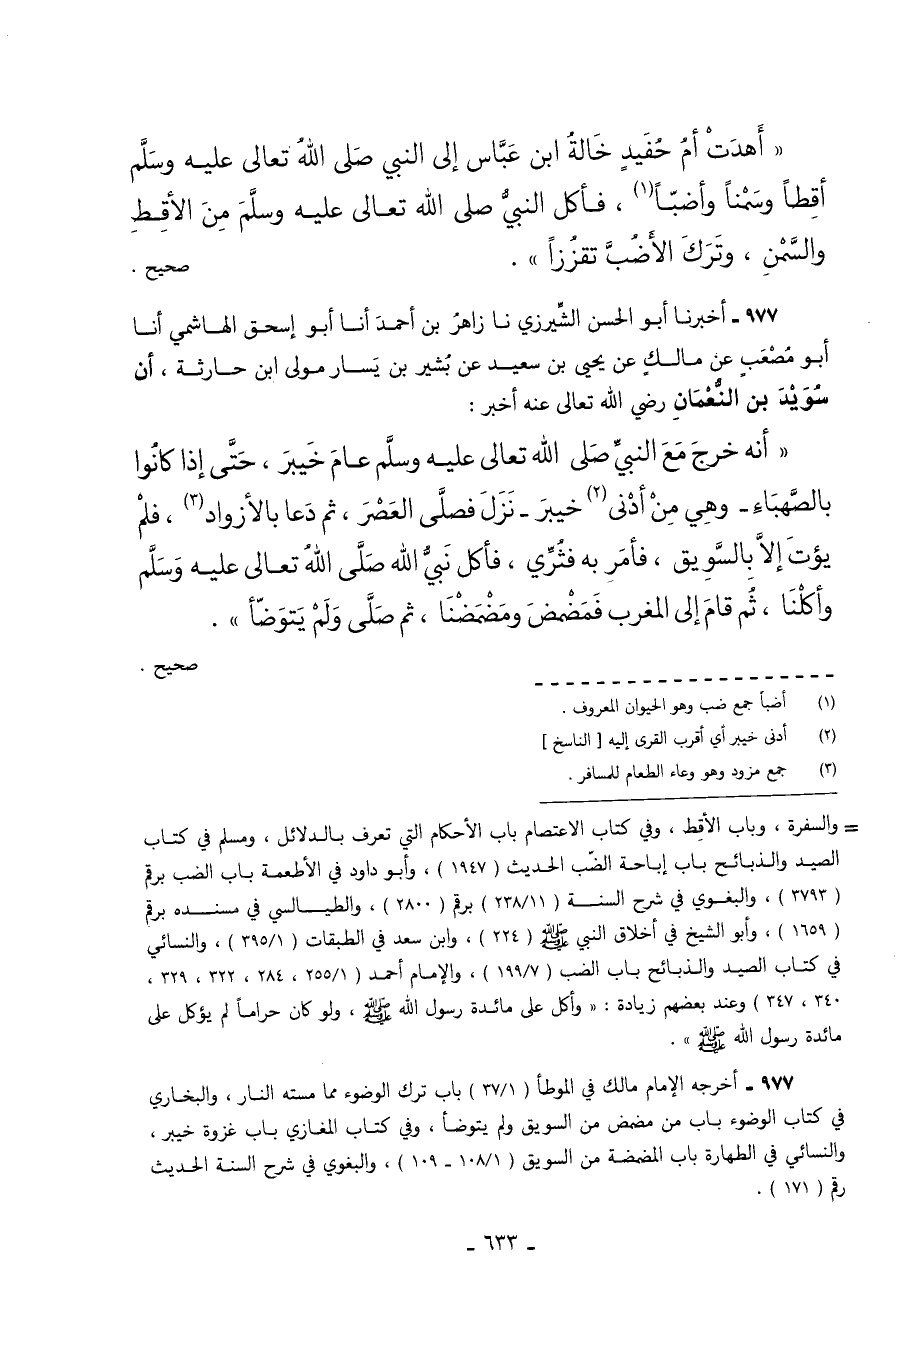 « أَهدَتْ أمُ حُفَيدٍ خَالةُ ابن عَبَّاس إلى النبي صَلى اللهُ تعالى عليه وسَلَّم
أقِطاً وسَمْناً وأضبّاً(١) ، فأكل النبيُّ صلى الله تعالى عليه وسلَّمَ مِنَ الأقِطِ
والسَّمْنِ ، وتَرَكَ الأضُبَّ تقزُزاً » .
صحيح .
٩٧٧ ـ أخبرنا أبو الحسن الشِّيرزي نا زاهرُ بن أحمدَ أنا أبو إسحق الهاشمي أنا
أبو مُصْعَبٍ عن مالكٍ عن يحيى بن سعيد عن بُشير بن يَسار مولى ابن حارثة ، أن
سُوَيْدَ بن النُّعْمَانِ رضي الله تعالى عنه أخبر :
« أنه خرجَ مَعَ النبيِّ صَلى الله تعالى عليه وسلَّم عامَ خَيبرَ ، حَتَّى إذا كانُوا
بالصَّهبَاءِ ـ وهيِ مِنْ أدْنى(٢) خيبرَ ـ نَزَلَ فصلَّى العَصْرَ ، ثم دَعا بالأزواد(٣) ، فلمْ
يؤتَ إلاَّ بالسَّويق ، فأمَر به فثُرِّي ، فأكل نَبيُّ الله صَلَّى اللهُ تعالى عليه وَسَلَّم
وأكلْنَا ، ثُم قامَ إلى المغرب فَمَضْمضَ ومَضْمَضْنَا ، ثم صَلَّى وَلَمْ يَتوَضّأ » .
صحيح .
(١) أضباً جمع ضب وهو الحيوان المعروف .
(٢) أدنى خيبر أي أقرب القرى إليه [ الناسخ ]
(٣) جمع مزود وهو وعاء الطعام للمسافر .
= والسفرة ، وباب الأقِط ، وفي كتاب الاعتصام باب الأحكام التي تعرف بالدلائل ، ومسلم في كتاب
الصيد والذبائح باب إباحة الضّب الحديث ( ١٩٤٧ ) ، وأبو داود في الأطعمة باب الضب برقم
( ٣٧٩٣ ) ، والبغوي في شرح السنة ( ٢٣٨/١١ ) برقم ( ٢٨٠٠ ) ، والطيالسي في مسنده برقم
( ١٦٥٩ ) ، وأبو الشيخ في أخلاق النبي ﷺ ( ٢٢٤ ) ، وابن سعد في الطبقات ( ٣٩٥/١ ) ، والنسائي
في كتاب الصيد والذبائح باب الضب ( ١٩٩/٧ ) ، والإمام أحمد ( ٢٥٥/١ ، ٢٨٤ ، ٣٢٢ ، ٣٢٩ ،
٣٤٠ ، ٣٤٧ ) وعند بعضهم زيادة : « وأكل على مائدة رسول الله ﷺ ، ولو كان حراماً لم يؤكل على
مائدة رسول الله ﷺ » .
٩٧٧ ـ أخرجه الإمام مالك في الموطأ ( ٣٧/١ ) باب ترك الوضوء مما مسته النار ، والبخاري
في كتاب الوضوء باب من مضمض من السويق ولم يتوضأ ، وفي كتاب المغازي باب غزوة خيبر ،
والنسائي في الطهارة باب المضمضة من السويق ( ١٠٨/١ ـ ١٠٩ ) ، والبغوي في شرح السنة الحديث
رقم ( ١٧١ ) .
ـ ٦٣٣ ـ